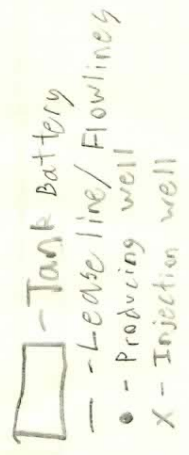 - Tank Battery
— - Lease line/Flowlines
● - Producing well
X - Injection well